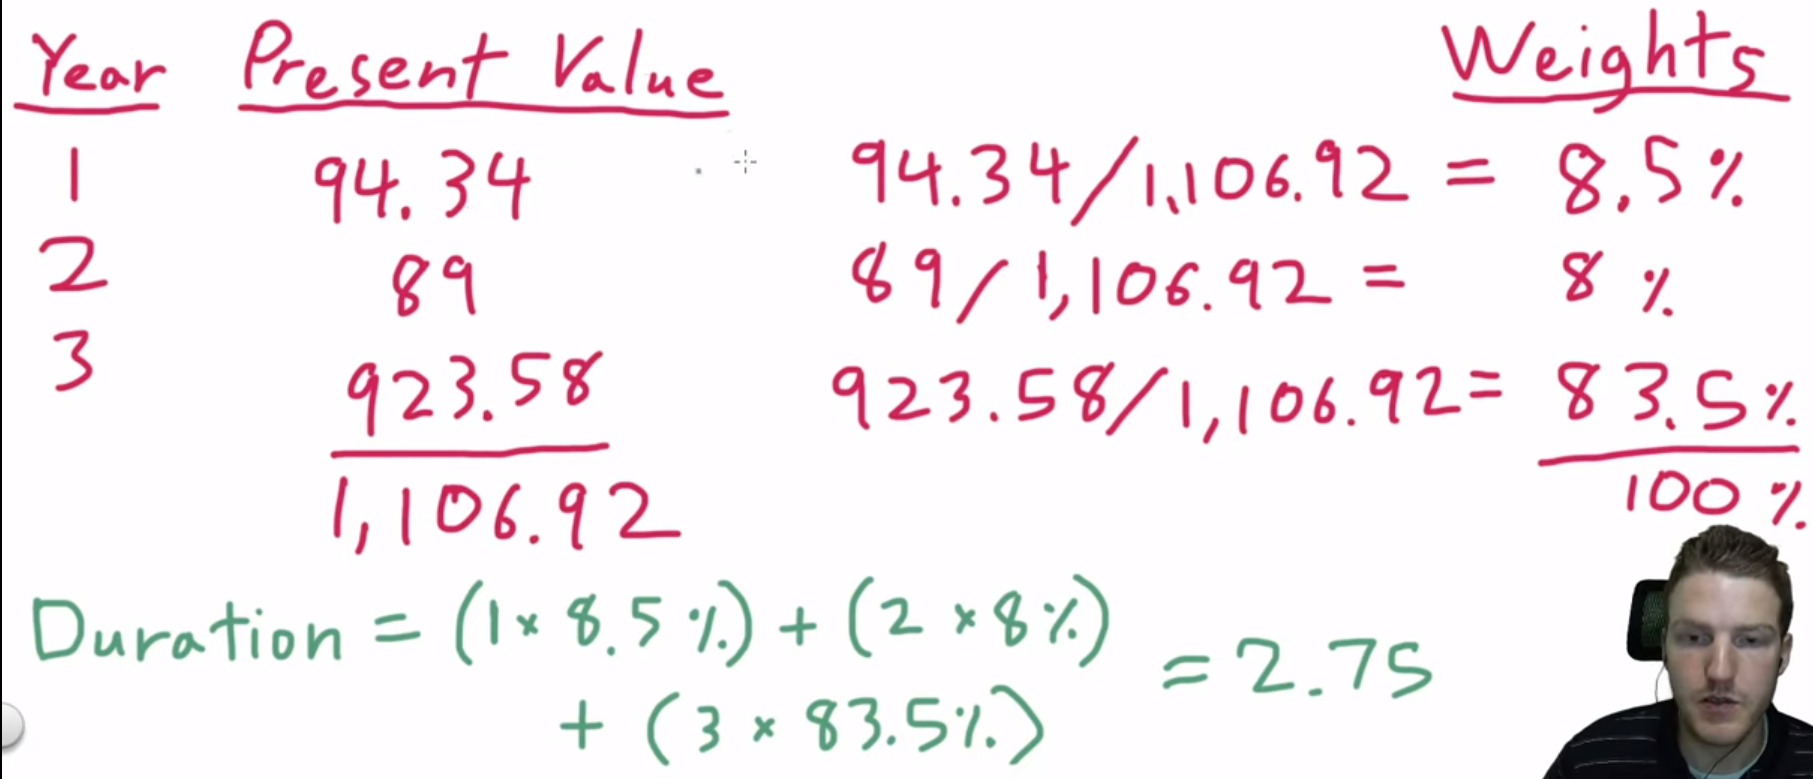 Year Present Value Weights
1 94.34 94.34/1,106.92 = 8.5%
2 89 89/1,106.92 = 8%
3 923.58 923.58/1,106.92 = 83.5%
1,106.92 100%
Duration = (1 × 8.5%) + (2 × 8%)
+ (3 × 83.5%) = 2.75